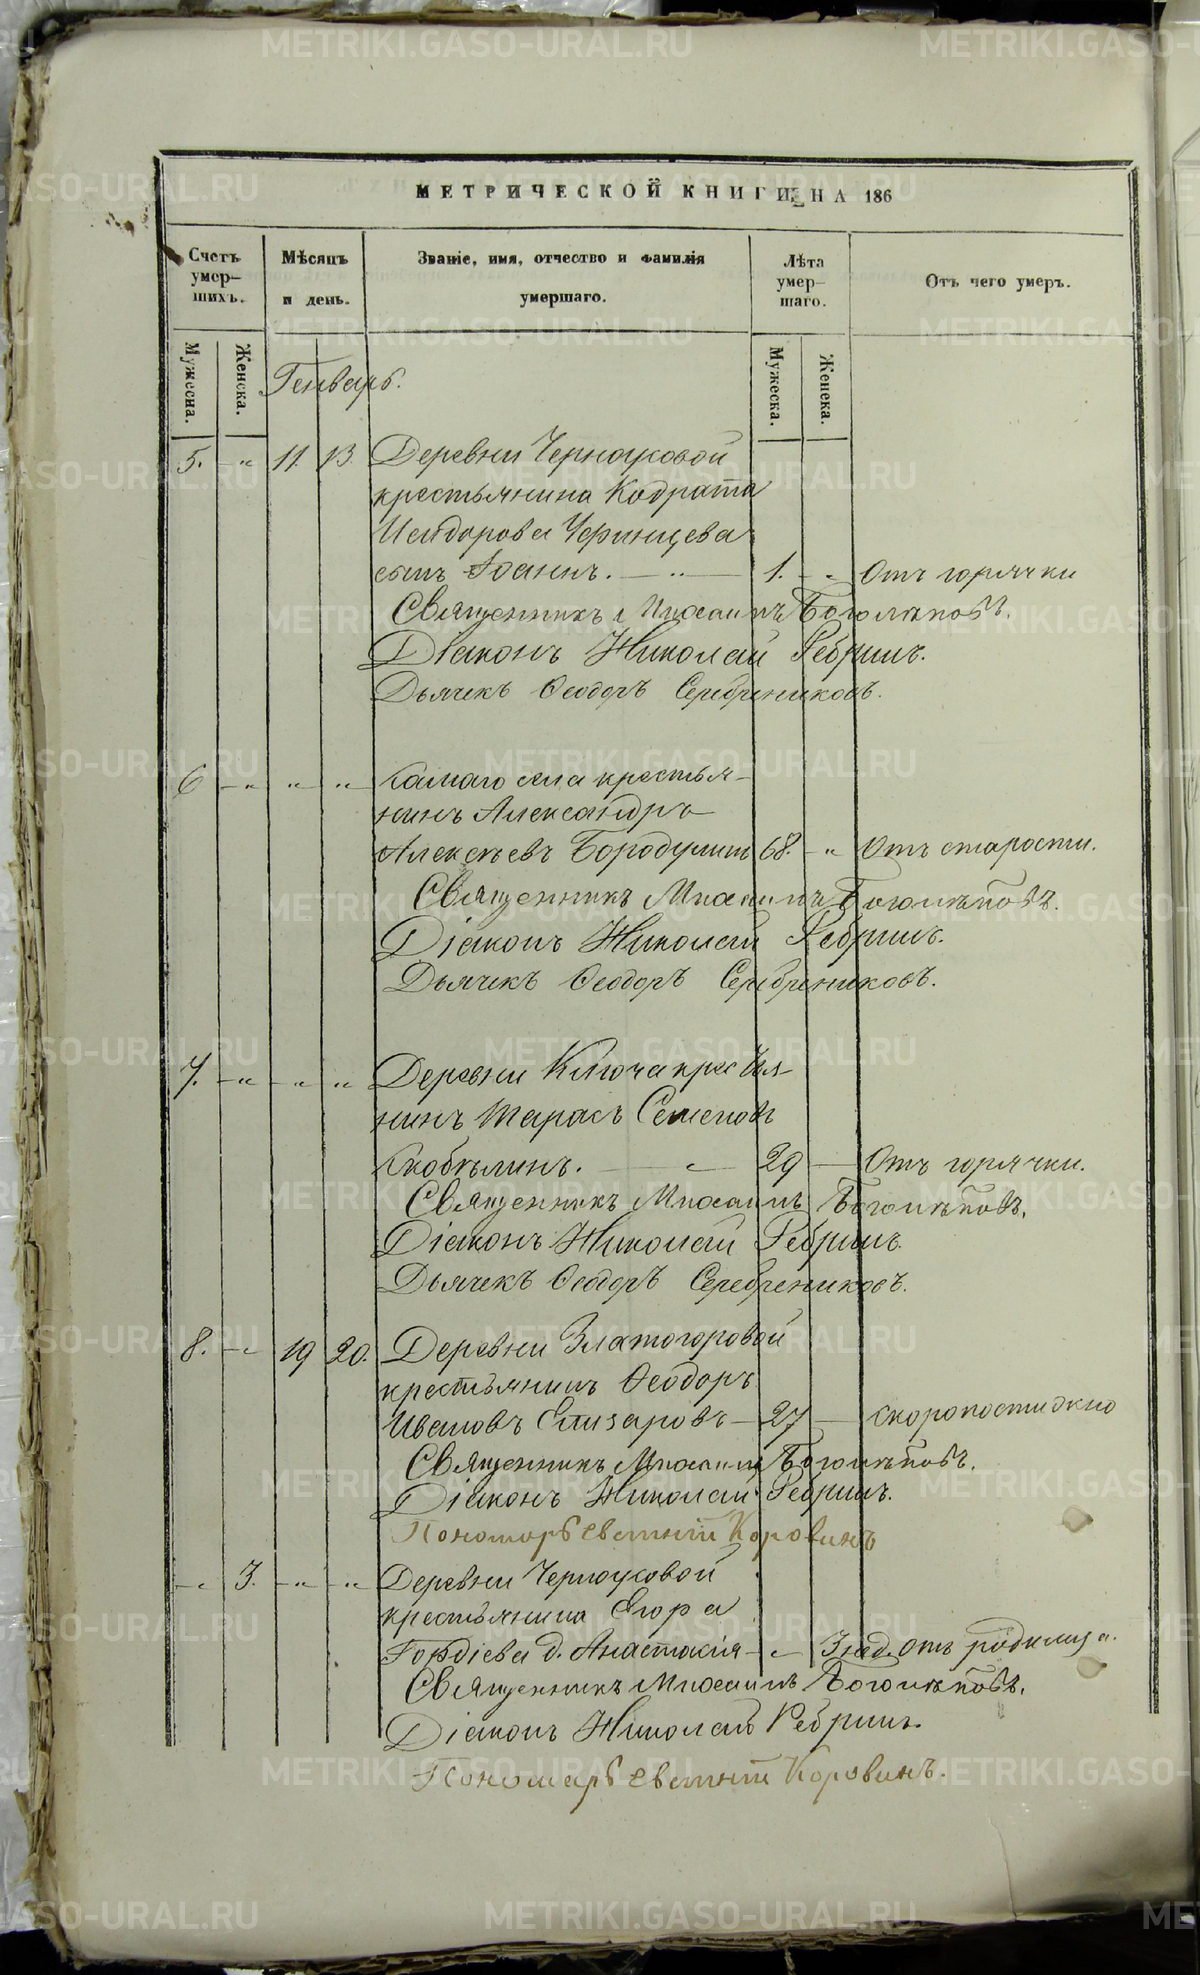 МЕТРИЧЕСКОЙ КНИГИ НА 186
Счетъ умер-шихъ.
Мѣсяцъ и день.
Званіе, имя, отчество и фамилія умершаго.
Лѣта умер-шаго.
Отъ чего умеръ.
Мужеска.
Женска.
Мужеска.
Женска.
Генварь.
5. - " 11. 13. Деревни Черноусовой
крестьянина Кодрата
Исидорова
сынъ Іоаннъ. - " - 1. - " Отъ горячки
Священникъ Михаилъ Боголѣповъ.
Діаконъ Николай Ребринъ.
Дьячекъ Ѳеодоръ Серебрениковъ.
6 - " " " Камаго села крестья-
нинъ Александръ
Алексѣевъ Бородулинъ 68. - " Отъ старости.
Священникъ Михаилъ Боголѣповъ.
Діаконъ Николай Ребринъ.
Дьячекъ Ѳеодоръ Серебрениковъ.
7. - " - " " Деревни Ключа крестья-
нинъ Тарасъ Семеновъ
29 - Отъ горячки.
Священникъ Михаилъ Боголѣповъ.
Діаконъ Николай Ребринъ.
Дьячекъ Ѳеодоръ Серебрениковъ.
8. - " 19 20. Деревни Златогоровой
крестьянинъ Ѳеодоръ
Ивановъ Елизаровъ - 27 - скоропостижно
Священникъ Михаилъ Боголѣповъ.
Діаконъ Николай Ребринъ.
Пономарь Евгеній Коровинъ
- " 3. - " - " Деревни Черноусовой
крестьянина Егора
Гордіева д. Анастасія - " 3 нед. Отъ родимца.
Священникъ Михаилъ Боголѣповъ.
Діаконъ Николай Ребринъ.
Пономарь Евгеній Коровинъ.
METRIKI.GASO-URAL.RU